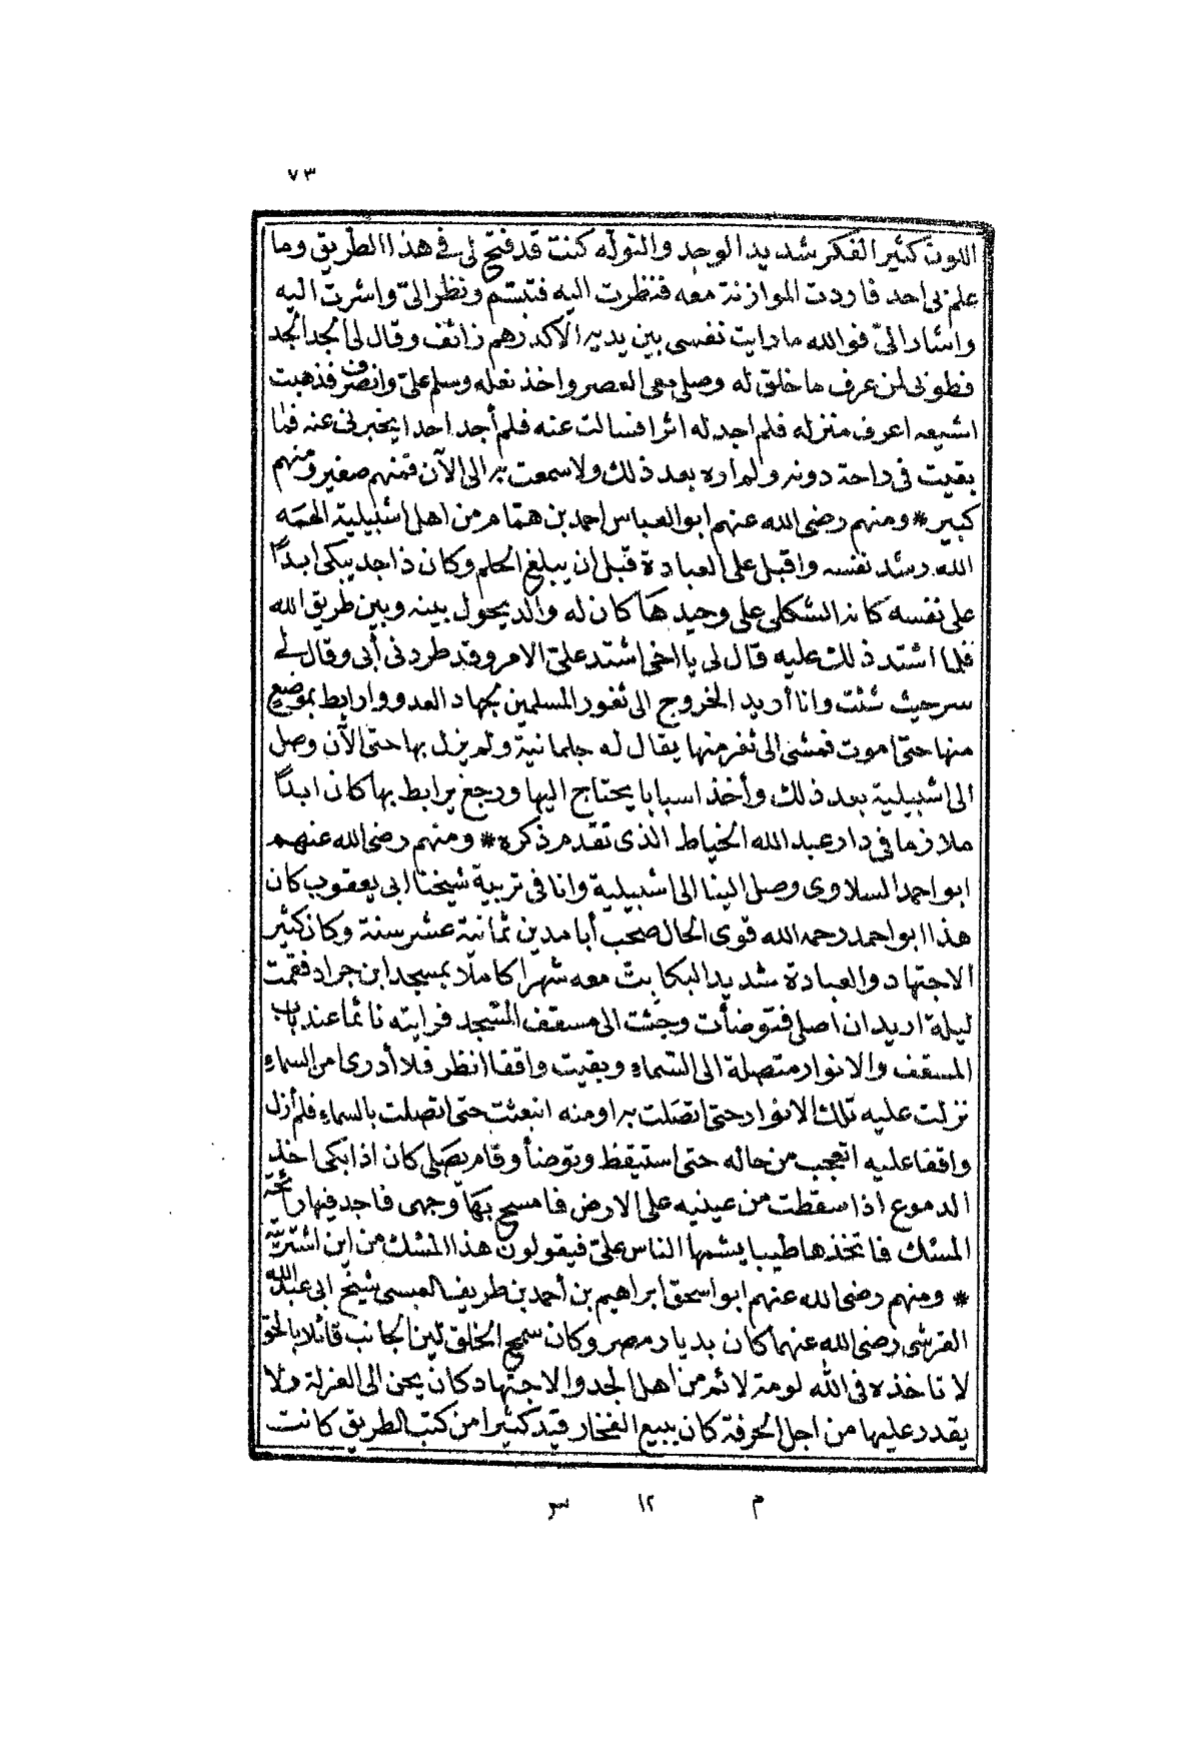 ٧٣
اللون كثير الفكر شديد الوجد والتوله كنت قد فتح لى فى هذا الطريق وما
علم بى احد فاردت الموازنة معه فنظرت اليه فتبسم ونظر الىّ واشرت اليه
واشار الىّ فوالله مارايت نفسى بين يديه الا كدرهم زائف وقال لى الجد الجد
فطوبى لمن عرف ما خلق له وصلى معى العصر واخذ نعله وسلم علىّ وانصرف فذهبت
اشيعه اعرف منزله فلم اجد له اثرا فسالت عنه فلم أجد احدا يخبرنى عنه فما
بقيت فى راحة دونه ولم اره بعد ذلك ولا سمعت به الى الآن فمنهم صغير ومنهم
كبير * ومنهم رضى الله عنهم ابو العباس احمد بن همام من اهل اشبيلية الهمه
الله رشد نفسه واقبل على العبادة قبل ان يبلغ الحلم وكان ذا جد يبكى ابدًا
على نفسه كانه الثكلى على وحيدها كان له والد يحول بينه وبين طريق الله
فلما اشتد ذلك عليه قال لى يا اخى اشتد علىّ الامر وقد طردنى أبى وقال لى
سر حيث شئت وانا أريد الخروج الى ثغور المسلمين بجهاد العدو وارابط بموضع
منها حتى اموت فمشى الى ثغر منها يقال له جلمانية ولم يزل بها حتى الآن وصل
الى اشبيلية بعد ذلك وأخذ اسبابا يحتاج اليها ورجع يرابط بها كان ابدًا
ملازما فى دار عبد الله الخياط الذى تقدم ذكره * ومنهم رضى الله عنهم
ابو احمد السلاوى وصل الينا الى اشبيلية وانا فى تربية شيخنا ابى يعقوب كان
هذا ابو احمد رحمه الله قوى الحال صحب أبا مدين ثمانية عشر سنة وكان كثير
الاجتهاد والعبادة شديد البكا بت معه شهرًا كاملا بمسجد ابن جراد فقمت
ليلة اريد ان اصلى فتوضأت وجئت الى مسقف المسجد فرايته نائما عند باب
المسقف والانوار متصلة الى السماء وبقيت واقفا انظر فلا أدرى امن السماء
نزلت عليه تلك الانوار حتى اتصلت به او منه انبعثت حتى اتصلت بالسماء فلم أزل
واقفا عليه اتعجب من حاله حتى استيقظ وتوضأ وقام يصلى كان اذا بكى اخذ
الدموع اذا سقطت من عينيه على الارض فامسح بها وجهى فاجد فيها رائحة
المسك فاتخذها طيبا يشمها الناس علىّ فيقولون هذا المسك من اين اشتريته
* ومنهم رضى الله عنهم ابو اسحق ابراهيم بن أحمد بن طريف العبسى شيخ ابى عبد الله
القرشى رضى الله عنهما كان بديار مصر وكان سمح الخلق لين الجانب قائلا بالحق
لا تاخذه فى الله لومة لائم من اهل الجد والاجتهاد كان يحن الى العزلة ولا
يقدر عليها من اجل الحرفة كان يبيع الفخار قيد كثيرا من كتب الطريق كانت
م ١٢ س